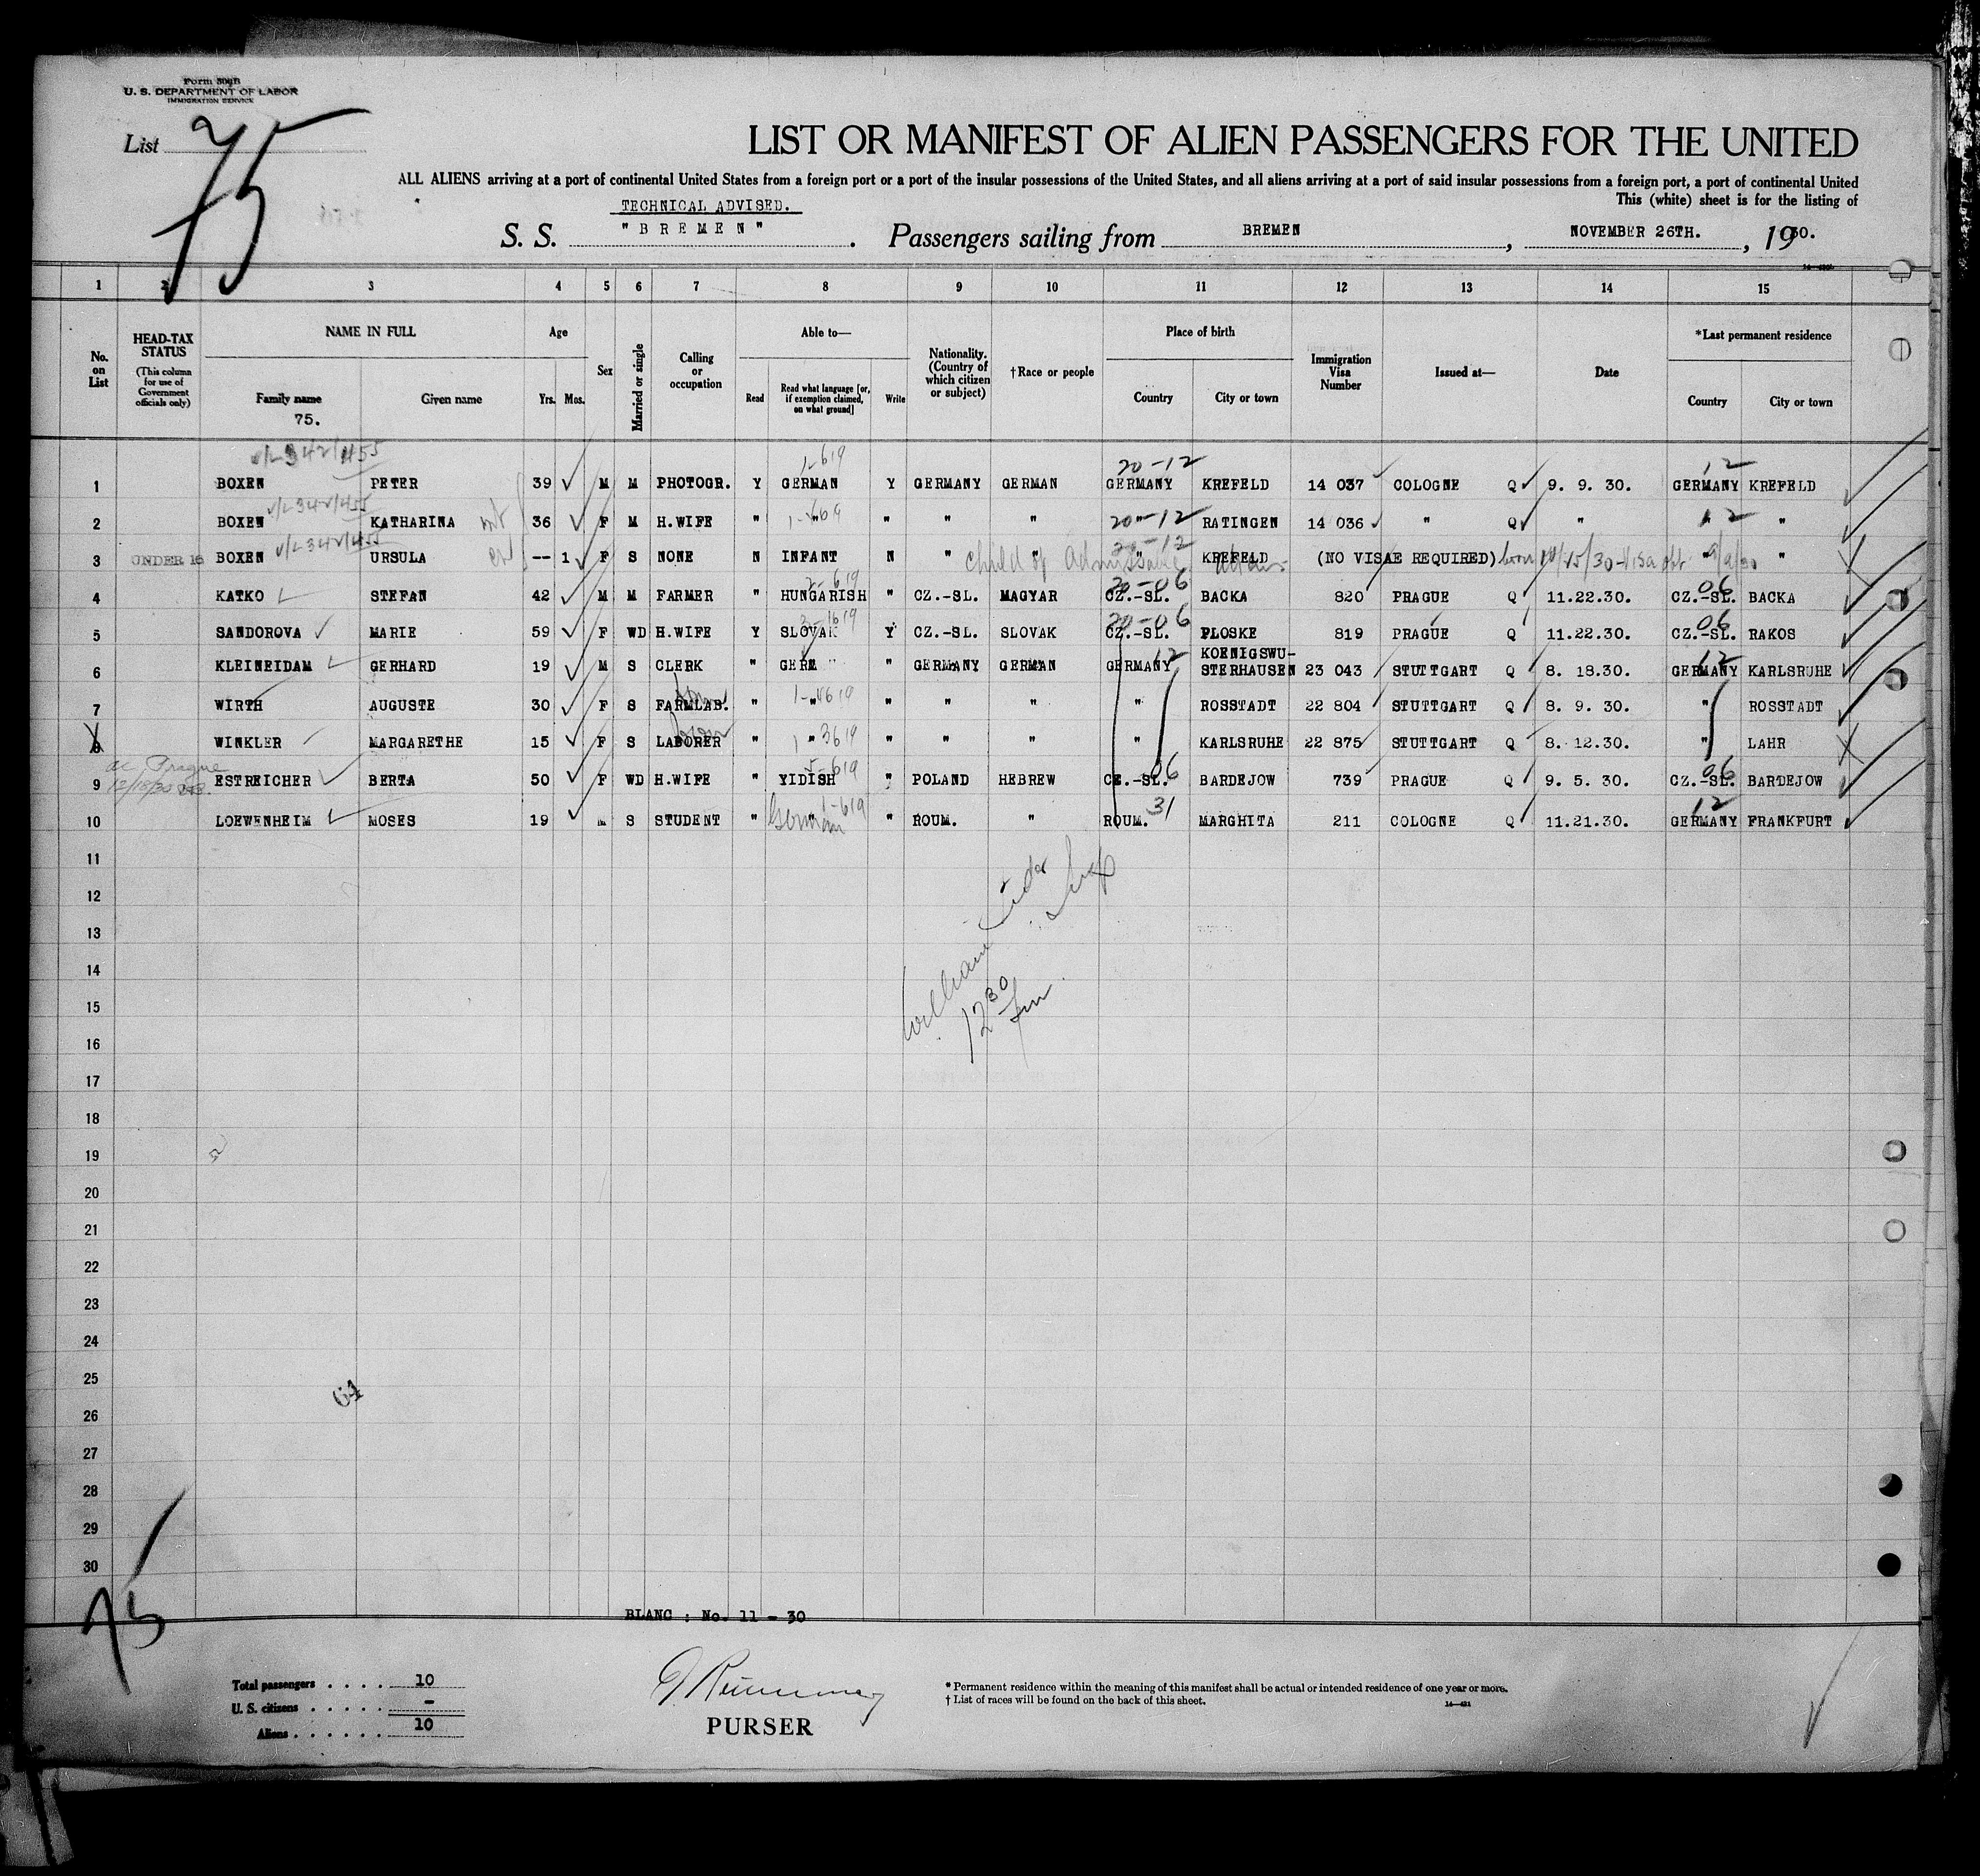 Form 500B
U. S. DEPARTMENT OF LABOR
IMMIGRATION SERVICE
List 75
LIST OR MANIFEST OF ALIEN PASSENGERS FOR THE UNITED
ALL ALIENS arriving at a port of continental United States from a foreign port or a port of the insular possessions of the United States, and all aliens arriving at a port of said insular possessions from a foreign port, a port of continental United
This (white) sheet is for the listing of
TECHNICAL ADVISED.
S. S. "BREMEN". Passengers sailing from BREMEN, NOVEMBER 26TH., 1930.
1 2 3 4 5 6 7 8 9 10 11 12 13 14 15
No. on List
HEAD-TAX STATUS (This column for use of Government officials only)
NAME IN FULL
Family name
75.
Given name
Age
Yrs. Mos.
Sex
Married or single
Calling or occupation
Able to—
Read
Read what language [or, if exemption claimed, on what ground]
Write
Nationality. (Country of which citizen or subject)
†Race or people
Place of birth
Country
City or town
Immigration Visa Number
Issued at—
Date
*Last permanent residence
Country
City or town
1 BOXEN PETER 39 M M PHOTOGR. Y GERMAN 1-619 Y GERMANY GERMAN GERMANY 20-12 KREFELD 14 037 COLOGNE Q 9. 9. 30. GERMANY 12 KREFELD
2 BOXEN KATHARINA 36 F M H.WIFE " " " " " " 20-12 RATINGEN 14 036 " Q " " 12 "
3 UNDER 16 BOXEN URSULA -- 1 F S NONE N INFANT N " " " 20-12 KREFELD (NO VISAE REQUIRED) " "
child of Admissable
4 KATKO STEFAN 42 M M FARMER " HUNGARISH 2-619 " CZ.-SL. MAGYAR CZ.-SL. 20-06 BACKA 820 PRAGUE Q 11.22.30. CZ.-SL. 06 BACKA
5 SANDOROVA MARIE 59 F WD H.WIFE Y SLOVAK Y CZ.-SL. SLOVAK CZ.-SL. 20-06 PLOSKE 819 PRAGUE Q 11.22.30. CZ.-SL. 06 RAKOS
6 KLEINEIDAM GERHARD 19 M S CLERK " GERM " GERMANY GERMAN GERMANY 12 KOENIGSWU-STERHAUSEN 23 043 STUTTGART Q 8. 18.30. GERMANY 12 KARLSRUHE
7 WIRTH AUGUSTE 30 F S FARMLAB. " " " " " " ROSSTADT 22 804 STUTTGART Q 8. 9. 30. " ROSSTADT
8 WINKLER MARGARETHE 15 F S LABORER " " " " " " KARLSRUHE 22 875 STUTTGART Q 8. 12.30. " LAHR
9 ESTREICHER BERTA 50 F WD H.WIFE " YIDISH 5-619 " POLAND HEBREW CZ.-SL. 06 BARDEJOW 739 PRAGUE Q 9. 5. 30. CZ.-SL. 06 BARDEJOW
10 LOEWENHEIM MOSES 19 M S STUDENT " " German 1-619 " ROUM. " ROUM. 31 MARGHITA 211 COLOGNE Q 11.21.30. GERMANY 12 FRANKFURT
11
12
13
14
15
16
17
18
19
20
21
22
23
24
25
26
27
28
29
30
William
12 30
64
75
BLANC : No. 11 - 30
Total passengers . . . . . 10
U. S. citizens . . . . . -
Aliens . . . . . . 10
PURSER
* Permanent residence within the meaning of this manifest shall be actual or intended residence of one year or more.
† List of races will be found on the back of this sheet.